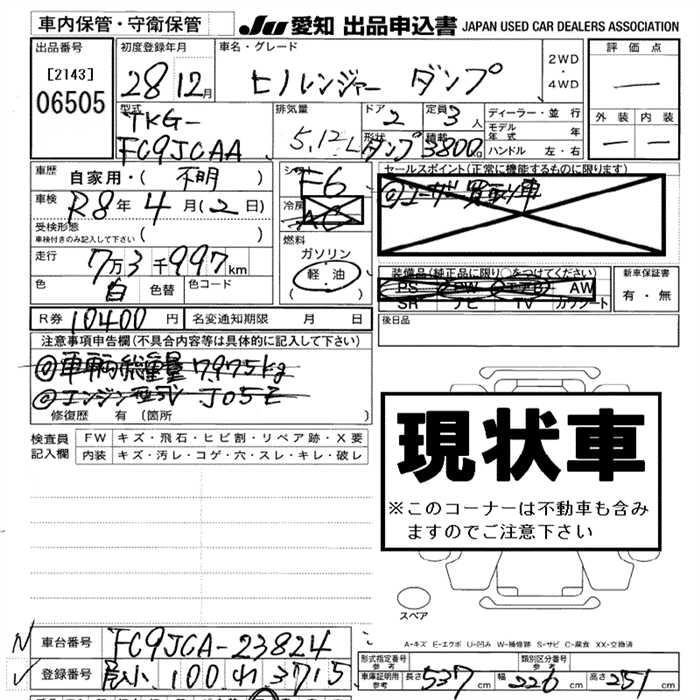 車内保管・守衛保管
JU 愛知 出品申込書 JAPAN USED CAR DEALERS ASSOCIATION
出品番号 初度登録年月 車名・グレード 評価点
[2143] 28 12月 ヒノレンジャー ダンプ 2WD・4WD ―
06505 型式 排気量 ドア 2 定員 3人 ディーラー・並行 外装 内装
TKG- モデル年式 年 ― ―
FC9JCAA 5,12L 形状 ダンプ 積載 3800 ハンドル 左・右
車歴 自家用・( 不明 ) シフト F6 セールスポイント(正常に機能するものに限ります)
車検 R8年 4月(2日) 冷房 AC ◎ユーザー買取り車
受検形態 ( )
車検付きのみ記入して下さい
走行 7万3千997km 燃料 ガソリン 軽・油 ( )
装備品(純正品に限り○をつけてください) 新車保証書
PS PW エアB AW 有・無
色 白 色替 色コード SR ナビ TV カワシート
R券 10400円 名変通知期限 月 日 後日品
注意事項申告欄(不具合内容等は具体的に記入して下さい)
◎車輌総重量 7975kg
◎エンジン型式 J05E
修復歴 有(箇所 )
検査員記入欄 FW キズ・飛石・ヒビ割・リペア跡・X要
内装 キズ・汚レ・コゲ・穴・スレ・キレ・破レ
現状車
※このコーナーは不動車も含み
ますのでご注意下さい
スペア
A-キズ E-エクボ U-凹み W-補修跡 S-サビ C-腐食 XX-交換済
N 車台番号 FC9JCA-23824
形式指定番号 参考 類別区分番号 参考
✓ 登録番号 100 れ 3715
車庫証明用参考 長さ 537cm 幅 226cm 高さ 251cm